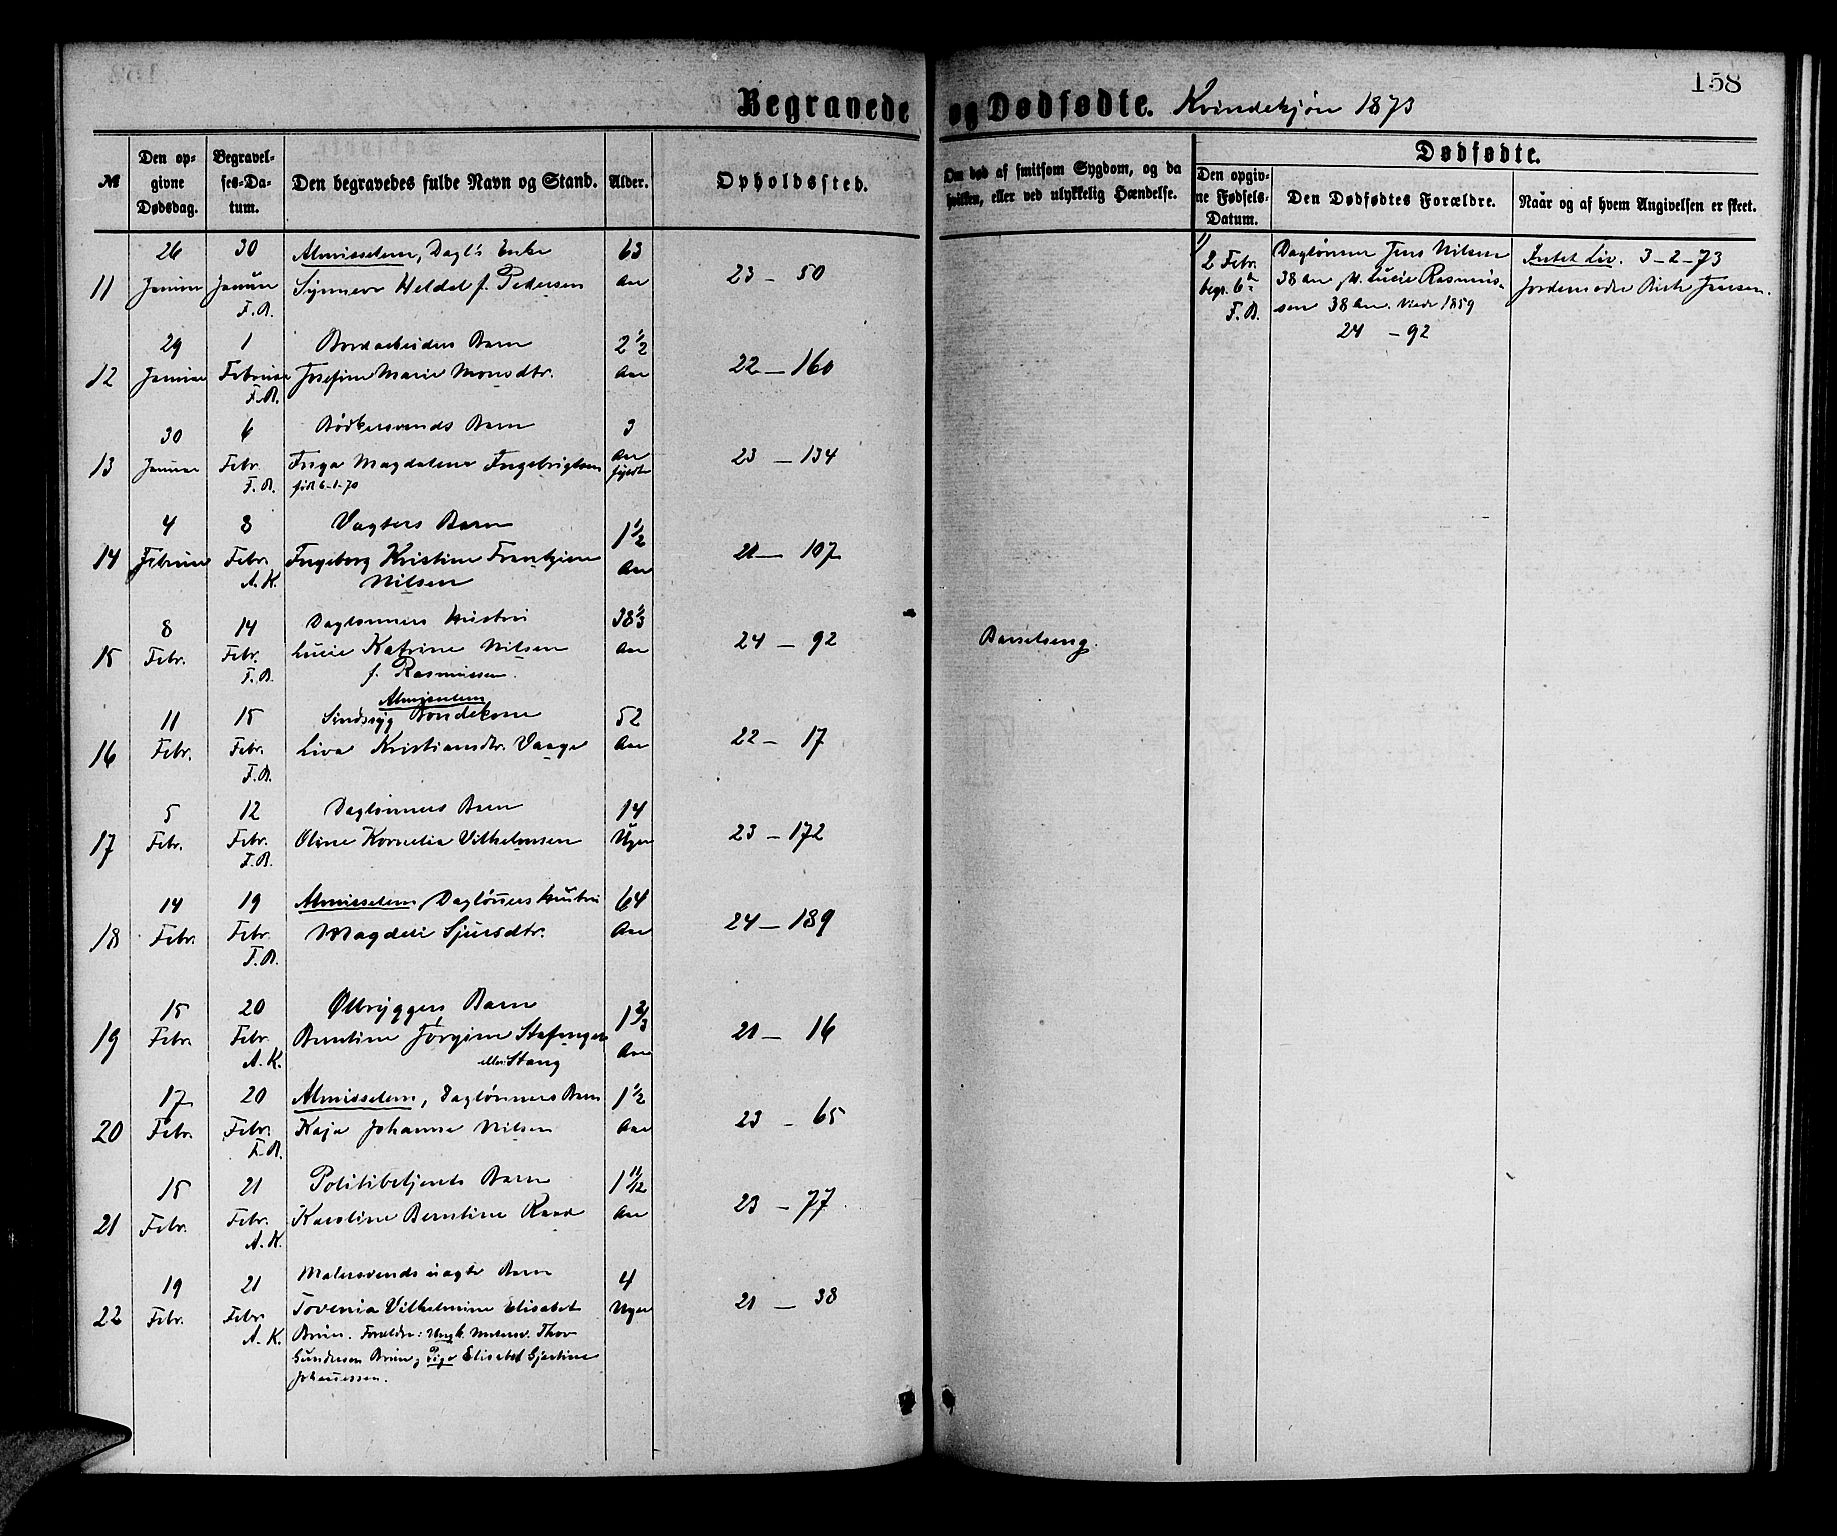 158
Begravede og Dødfødte. Kvindekjøn 1873
№
Den op-
givne
Dødsdag.
Begravel-
ses-Da-
tum.
Den begravedes fulde Navn og Stand.
Alder.
Opholdssted.
Om død af smitsom Sygdom, og da
hvilken, eller ved ulykkelig Hændelse.
Dødfødte.
Den opgiv-
ne Fødsels-
Datum.
Den Dødfødtes Forældre.
Naar og af hvem Angivelsen er skeet.
26 30 Almisselem, Dagl's Enke 63
11 Januar Januar Synneve Heldal f. Pedersen Aar 23 - 50
F.B.
1)
2 Febr.
begr. 6te
F.B.
Daglønner Jens Nilsen
38 Aar, & Lucie Rasmus-
sen 38 Aar. Viede 1859
24 - 92
Intet Liv. 3-2-73
Jordemoder Jensen.
29 1 Bordarbeiders Barn 2 1/2
12 Januar Februar Josefine Marie Monsdtr. Aar 22 - 160
F.B.
30 6 Bødkersvends Barn 3
13 Januar Febr. Inga Magdalena Ingebrigtsen Aar 23 - 134
F.B. født 6-1-70
4 8 Vagters Barn 1 1/2
14 Februar Febr. Ingeborg Kristine Aar 21 - 107
A.K. Nilsen
8 14 Daglønners Hustru 38 1/3
15 Febr. Febr. Lucie Katrine Nilsen Aar 24 - 92 Barselseng.
F.B. f. Rasmussen.
Almisselem
11 15 Sindssyg Bondekone 52
16 Febr. Febr. Liva Kristiansdtr. Vaage Aar 22 - 17
F.B.
5 12 Daglønners Barn 14
17 Febr. Febr. Oline Kornelia Vilhelmsen Uger 23 - 172
F.B.
14 19 Almisselem, Dagløners Hustru 64
18 Febr. Febr. Magdeli Sjursdtr. Aar 24 - 189
F.B.
15 20 Ølbryggers Barn 1 2/3
19 Febr. Febr. Berntine Jørgine Aar 21 - 16
A.K. eller Stang
17 20 Almisselem, Daglønners Barn 1 1/2
20 Febr. Febr. Kaja Johanne Nilsen Aar 23 - 65
F.B.
15 21 Politibetjents Barn 1 11/12
21 Febr. Febr. Karoline Berntine Aar 23 - 77
A.K.
19 21 Malersvends uægte Barn 4
22 Febr. Febr. Tovenia Vilhelmine Elisabet Uger 21 - 38
A.K. Bruun. Forældre: Ungk. Malersv. Thor
Gundersen Bruun & Pige Elisabet Gjertine
Johannessen.